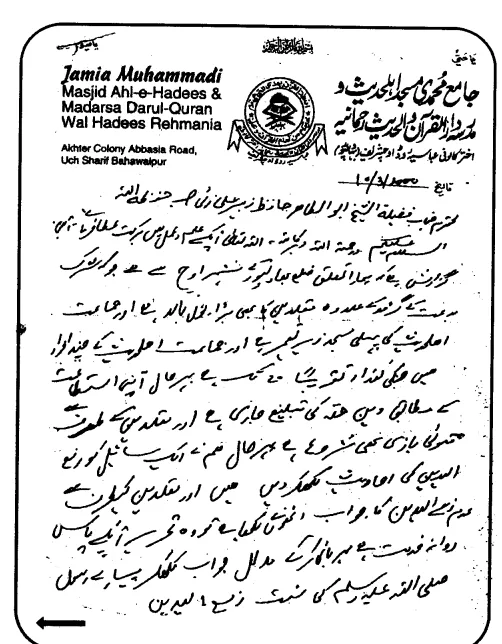 بسم اللہ الرحمن الرحیم
Jamia Muhammadi
Masjid Ahl-e-Hadees &
Madarsa Darul-Quran
Wal Hadees Rehmania
Akhter Colony Abbasia Road,
Uch Sharif Bahawalpur
جامع محمدی مسجد اہلحدیث و
مدرسہ دارالقرآن والحدیث رحمانیہ
اختر کالونی عباسیہ روڈ اوچشریف
تاریخ
محترم جناب فضیلۃ الشیخ ابو الطاہر حافظ زبیر علی زئی حفظہ اللہ
السلام علیکم ورحمۃ اللہ وبرکاتہ۔ اللہ تعالیٰ آپکے علم و عمل میں برکت عطا فرمائے آمین
گزارش ہے کہ میرا تعلق ضلع بہاولپور شہر اوچ سے ہے جو کہ شرک
بدعت کے گڑھ کے علاوہ مقلدین کا بھی
اہلحدیث کی پہلی مسجد زیر تعمیر ہے اور جماعت اہلحدیث کے چند افراد
ہیں جنکی تعداد تقریباً تک ہے بہرحال اپنی استطاعت
کے مطابق دین حقہ کی تبلیغ جاری ہے اور مقلدین کے طرف سے
فتویٰ بازی بھی شروع ہے بہرحال ہم نے ایک سائل کو رفع
الیدین کی احادیث لکھ کر دیں ہیں اور مقلدین کیطرف سے
عدم رفع الیدین کا جواب انھوں نے لکھا ہے تو وہ تحریر آپکے پاس
روانہ خدمت ہے مہربانی کر کے مدلل جواب لکھکر پیارے رسول
صلی اللہ علیہ وسلم کی سنت رفع الیدین